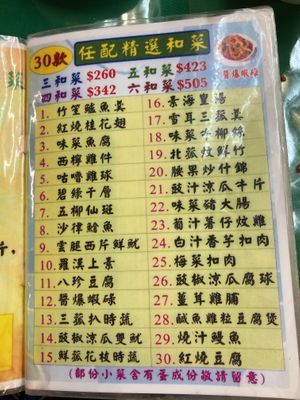 30款 任配精選和菜
三和菜 $260 五和菜 $423
四和菜 $342 六和菜 $505
醬爆蝦碌
1. 竹笙鱸魚羹
2. 紅燒桂花翅
3. 味菜魚腐
4. 西檸雞件
5. 咕嚕雞球
6. 碧綠千層
7. 五柳仙斑
8. 沙律鯰魚
9. 雲腿西片鮮魷
10. 羅漢上素
11. 八珍豆腐
12. 醬爆蝦碌
13. 三菇扒時蔬
14. 豉椒涼瓜雙魷
15. 鮮菰花枝時蔬
16. 景海皇湯
17. 雪耳三菰羹
18. 味菜牛柳絲
19. 北菰炆鮮竹
20. 腰果炒什錦
21. 豉汁涼瓜牛片
22. 味菜豬大腸
23. 葡汁薯仔炆雞
24. 白汁香芋扣肉
25. 梅菜扣肉
26. 豉椒涼瓜腐球
27. 薑茸雞脯
28. 鹹魚雞粒豆腐煲
29. 燒汁鰻魚
30. 紅燒豆腐
(部份小菜含有蛋成份敬請留意)